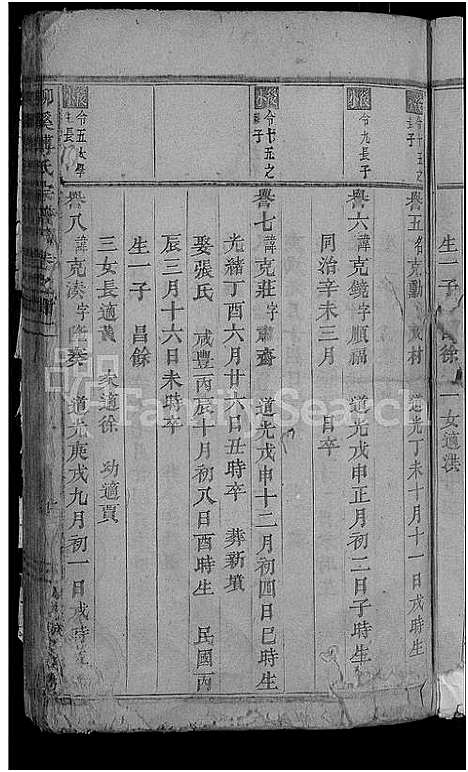 生一子 徐 一女適洪
令十五之
子
譽五 名克勳 材 道光丁未十月十一日戌時生
令九長子
譽六 諱克鏡字順福 道光戊申正月初二日子時生
同治辛未三月 日卒
令十五之
子
譽七 諱克莊字肅齋 道光戊申十二月初四日巳時生
光緒丁酉六月廿六日丑時卒 葬新墳
娶張氏 咸豐丙辰十月初八日酉時生 民國丙
辰三月十六日未時卒
生一子 昌餘
三女長適黃 次適徐 幼適賈
令五太學
生長
譽八 諱克湊字隆 道光庚戌九月初一日戌時
柳溪傅氏宗譜
FamilySearch